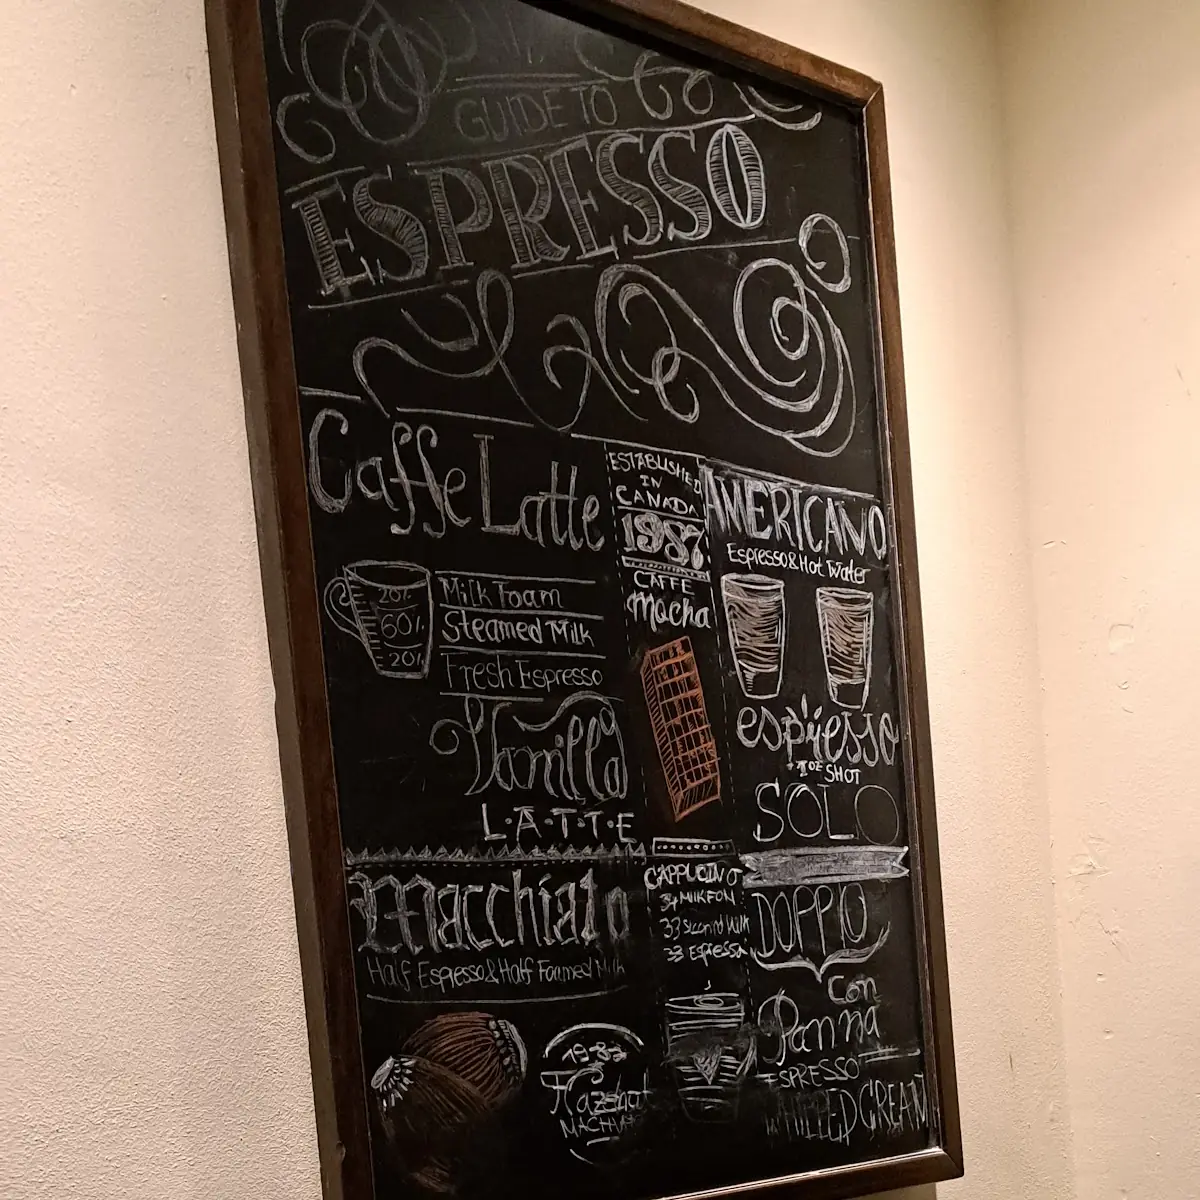 GUIDE TO
ESPRESSO
Caffe Latte
20%
60%
20%
Milk Foam
Steamed Milk
Fresh Espresso
Vanilla
L·A·T·T·E
Macchiato
Half Espresso & Half Foamed Milk
1987
Hazelnut
ESTABLISHED
IN
CANADA
1987
CAFFE
Mocha
CAPPUCINO
34 MILK FOM
33 Espresso
AMERICANO
Espresso & Hot Water
espresso
1oz SHOT
SOLO
DOPPIO
Con
Panna
ESPRESSO
WHIPPED CREAM